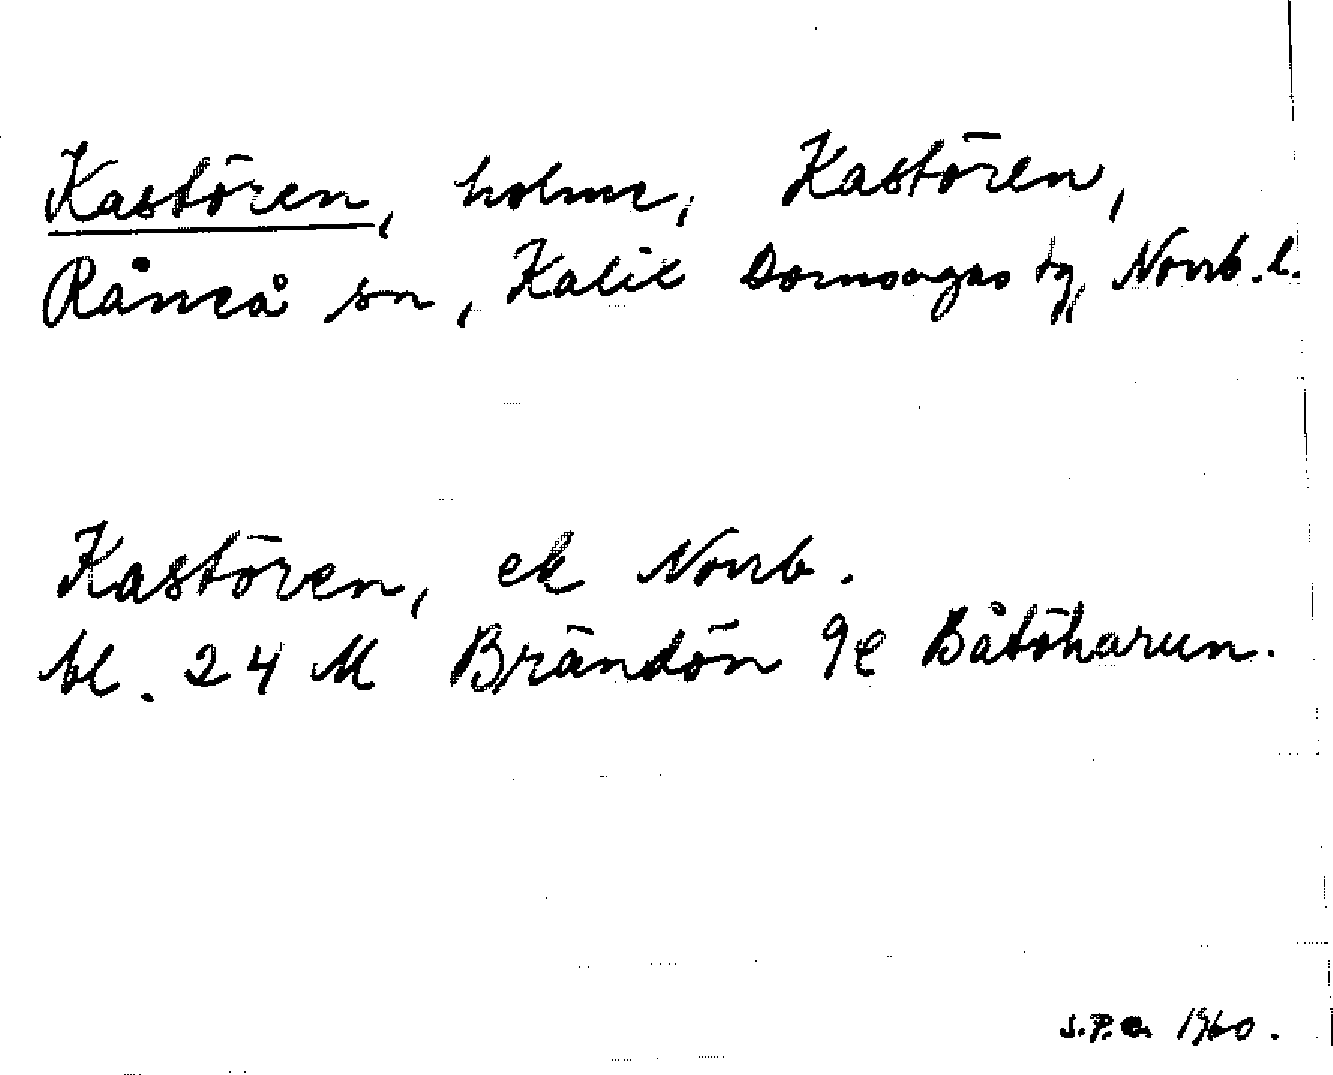 Kastören, holme, Kastören,
Råneå sn, Kalix Domsagas tg, Norrb. l.
Kastören, ek Norrb.
bl. 24 M Brändön 9e Båtöharun.
S.P.A. 1960.